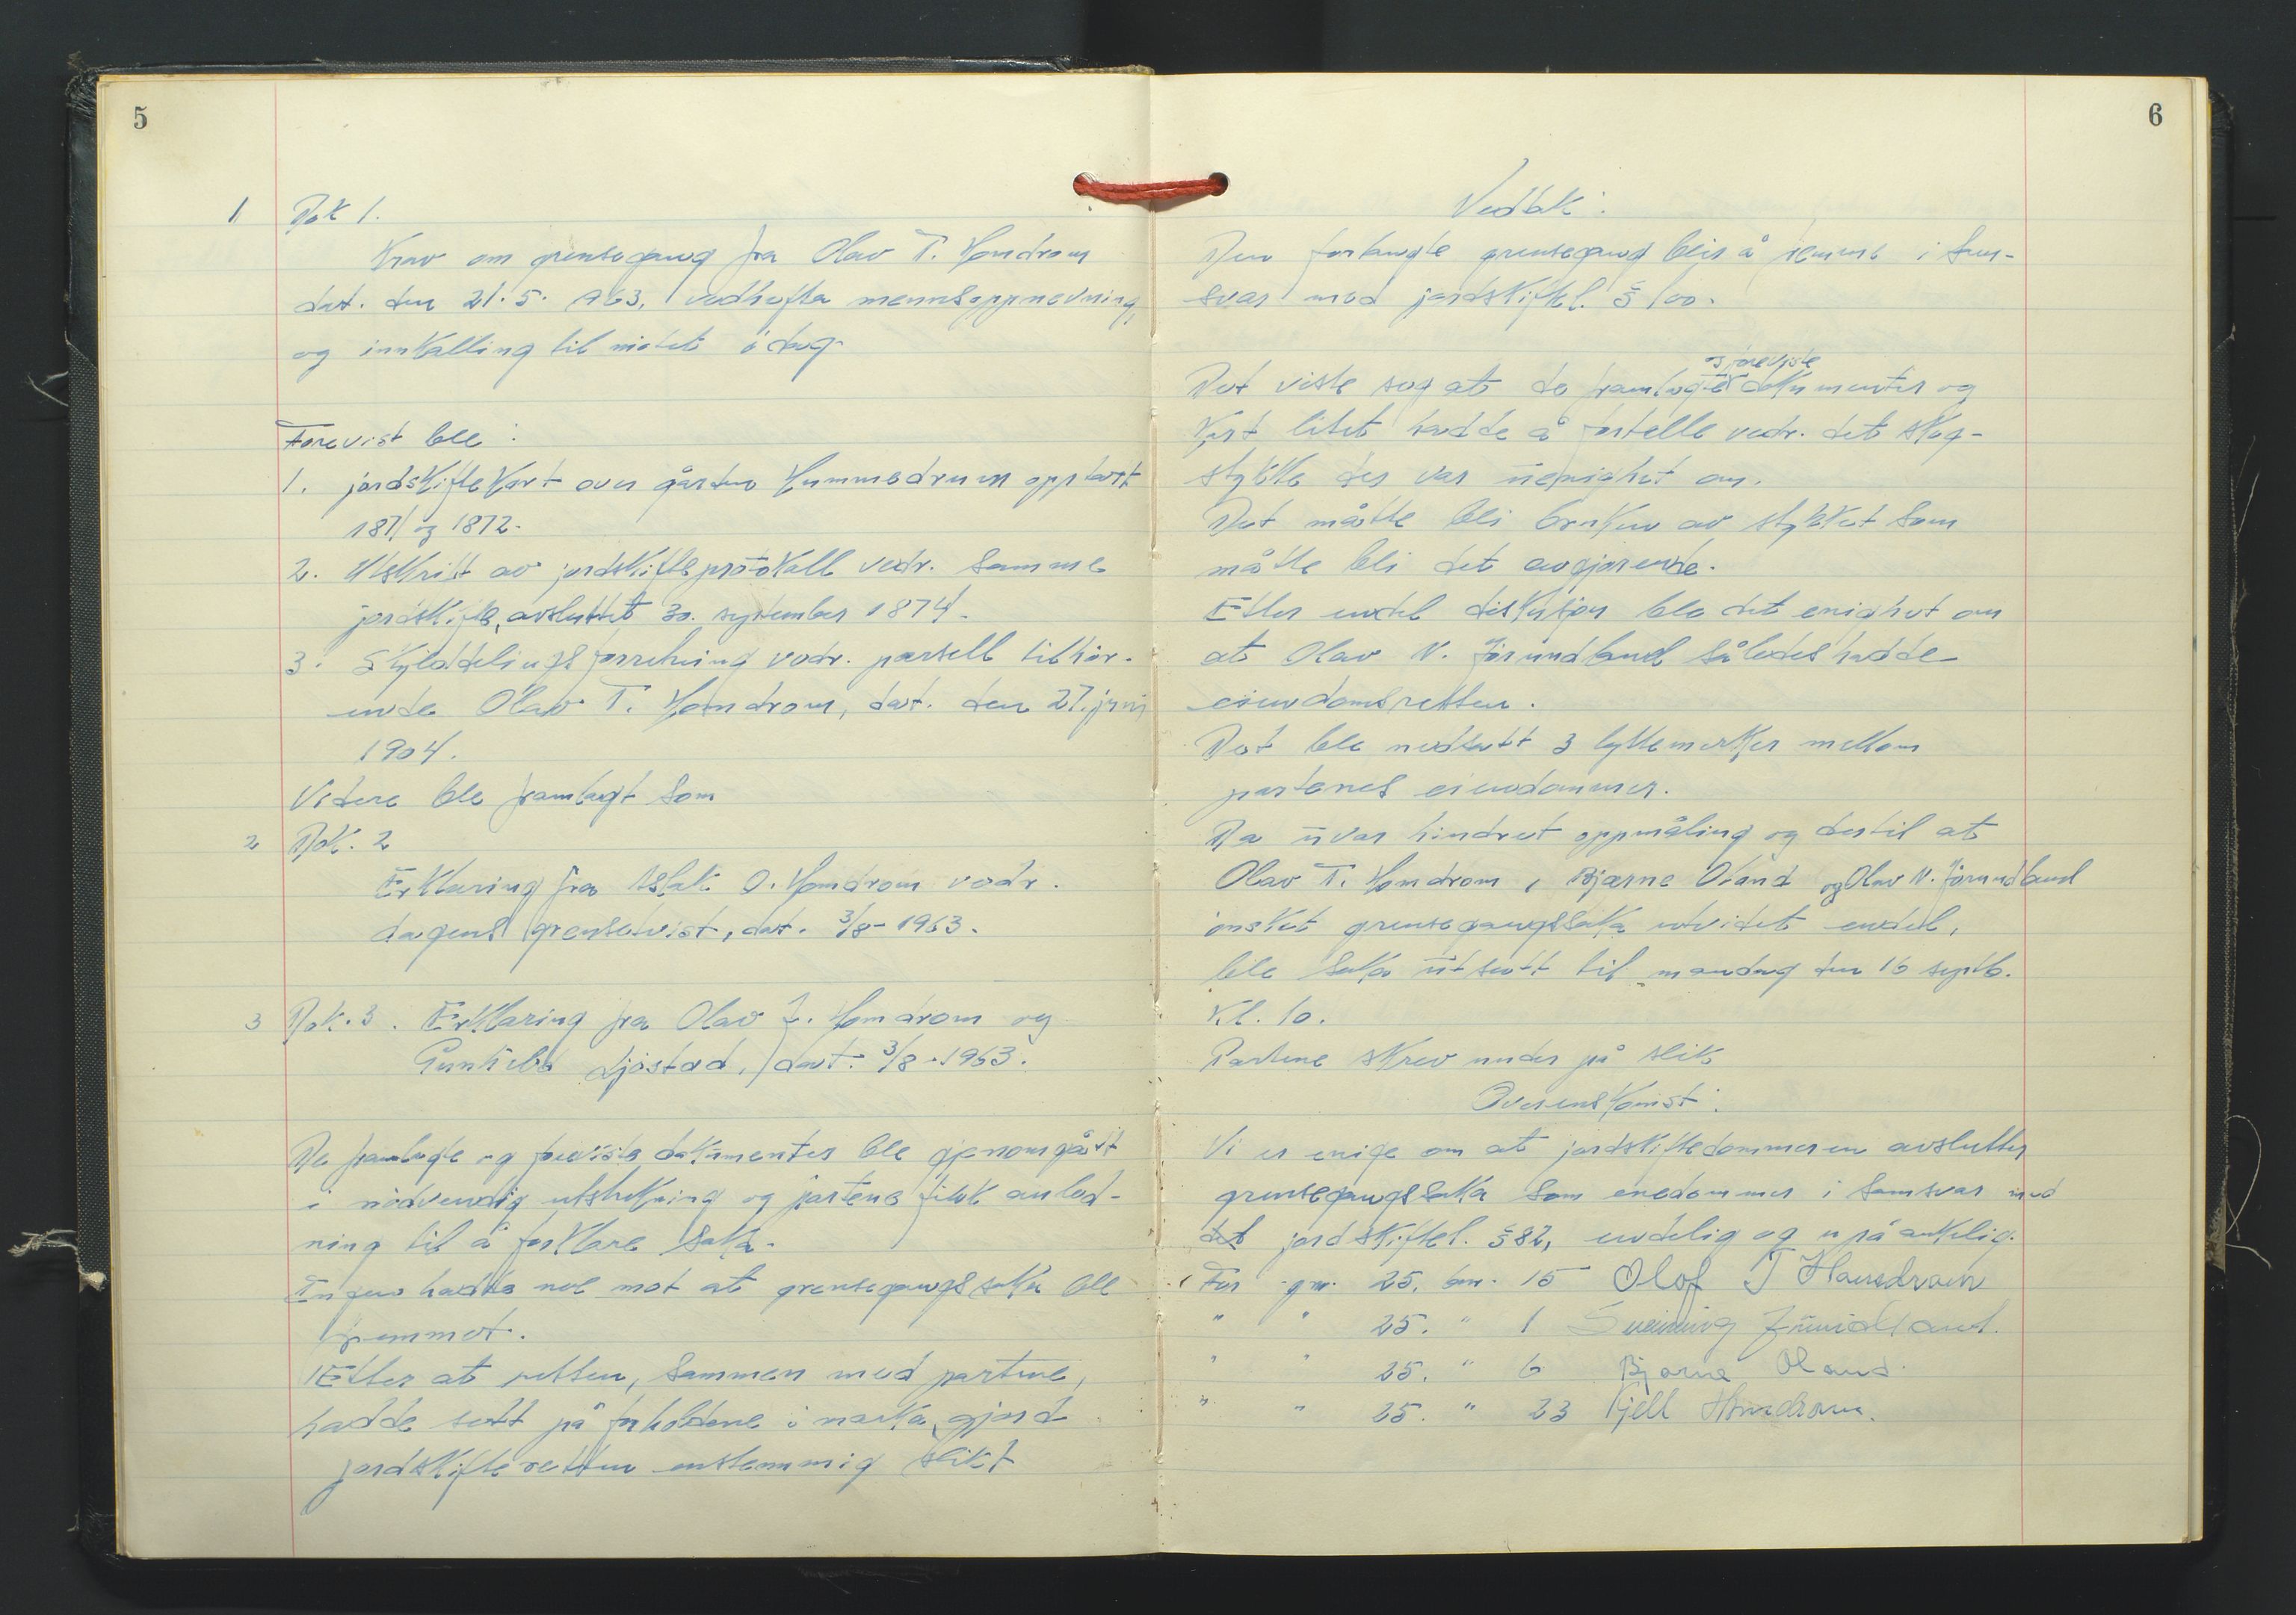 5
1 Dok 1.
Krav om grensegang fra Olav T. Homdrom
dat. den 21.5. 1963, vedhefta mennsoppnevning,
og innkalling til møtet idag.
Forevist ble:
1. jordskiftekart over gården Hummedrum opptatt
1871 og 1872.
2. Utskrift av jordskifteprotokoll vedr. samme
jordskifte, avsluttet 30. september 1874.
3. Skylddelingsforretning vedr. parsell tilhør-
ende Olav T. Homdrom, dat. den 27. juni
1904.
Videre ble framlagt som
2 Dok. 2
Erklæring fra Aslak O. Homdrom vedr.
dagens grensetvist, dat. 3/8-1963.
3 Dok. 3. Erklæring fra Olav J. Homdrom og
Ljøstad, dat. 3/8-1963.
De framlagte og foreviste dokumenter ble gjennomgått
i nødvendig utstrekning og partene fikk anled-
ning til å forklare saka.
Ingen hadde noe mot at grensegangssaka ble
fremmet.
Etter at retten, sammen med partene,
hadde sett på forholdene i marka, gjord
jordskifteretten enstemmig slikt
6
Vedtak:
Den forlangte grensegang blir å fremme i sam-
svar med jordskiftel. § 100.
og foreviste
Det viste seg at de framlagte dokumenter og
kart litet hadde å fortelle vedr. det skog-
stykke der var uenighet om.
Det måtte bli bruken av stykket som
måtte bli det avgjørende.
Etter endel diskusjon ble det enighet om
at Olav N. Jørundland således hadde
eiendomsretten.
Det ble nedsatt 3 byttemerker mellom
partenes eiendommer.
Da uvær hindret oppmåling og dertil at
Olav T. Homdrom, Bjarne Øland og Olav N. Jørundland
ønsket grensegangssaka utvidet endel,
ble saka utsatt til mandag den 16 septb.
kl. 10.
Partene skrev under på slik
Overenskomst:
Vi er enige om at jordskiftedommeren avslutter
grensegangssaka som enedommer i samsvar med
jordskiftel. § 82, endelig og upåankelig.
For gnr. 25, bnr. 15 Olof T Homdrom
" " 25. " 1
" " 25. " 6 Bjarne Øland.
" " 25. " 23 Kjell Homdrom.